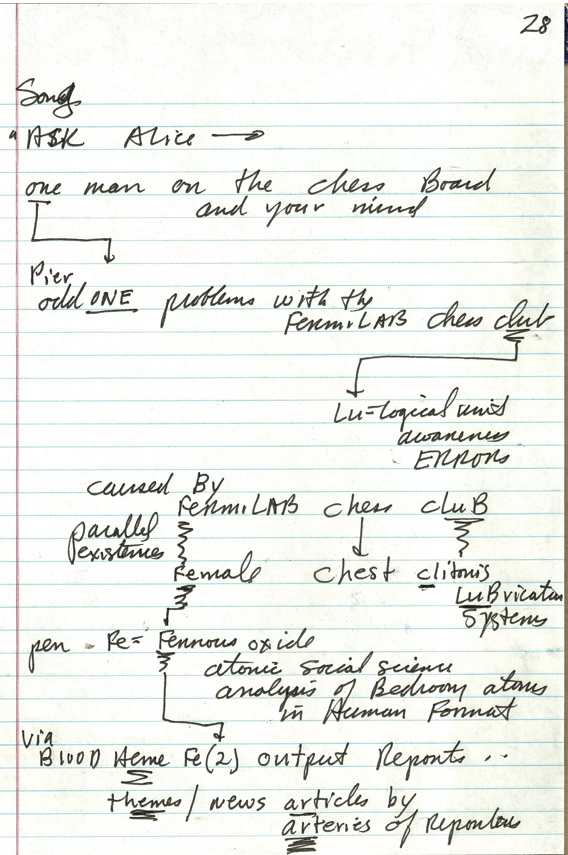 28
Song
"ASK Alice →
one man on the chess Board
and your mind
Pier
odd ONE problems with the
FermiLAB chess club
Lu=logical unit
awareness
ERRORS
caused By
FermiLAB chess cluB
parallel
existences
Female chest clitoris
LuBrication
Systems
pen - Fe= Ferrous oxide
atomic social science
analysis of Bedroom atoms
in Human Format
Via
Blood Heme Fe(2) output Reports ..
themes / news articles by
arteries of Reporters